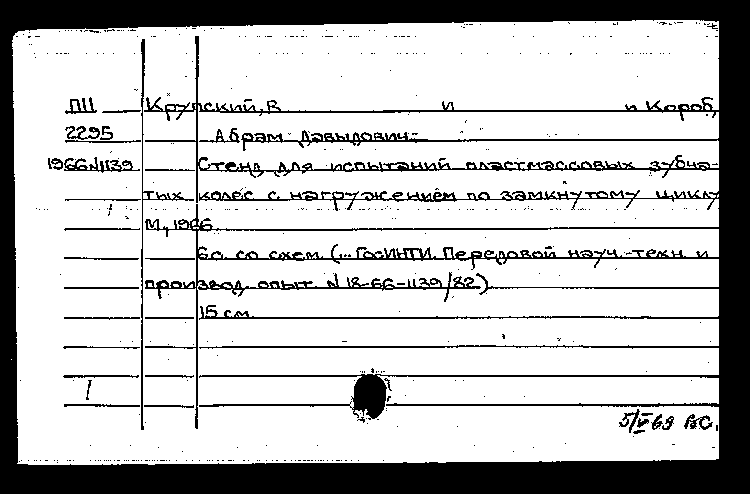 П11 Крупский, В и и Короб,
2295 Абрам Давыдович.
1966N1139 Стенд для испытаний пластмассовых зубча-
тых колес с нагружением по замкнутому циклу
М., 1966.
6с. со схем. (... ГосИНТИ. Передовой науч.-техн. и
производ. опыт. N 18-66-1139/82).
15 см.
5/V 69